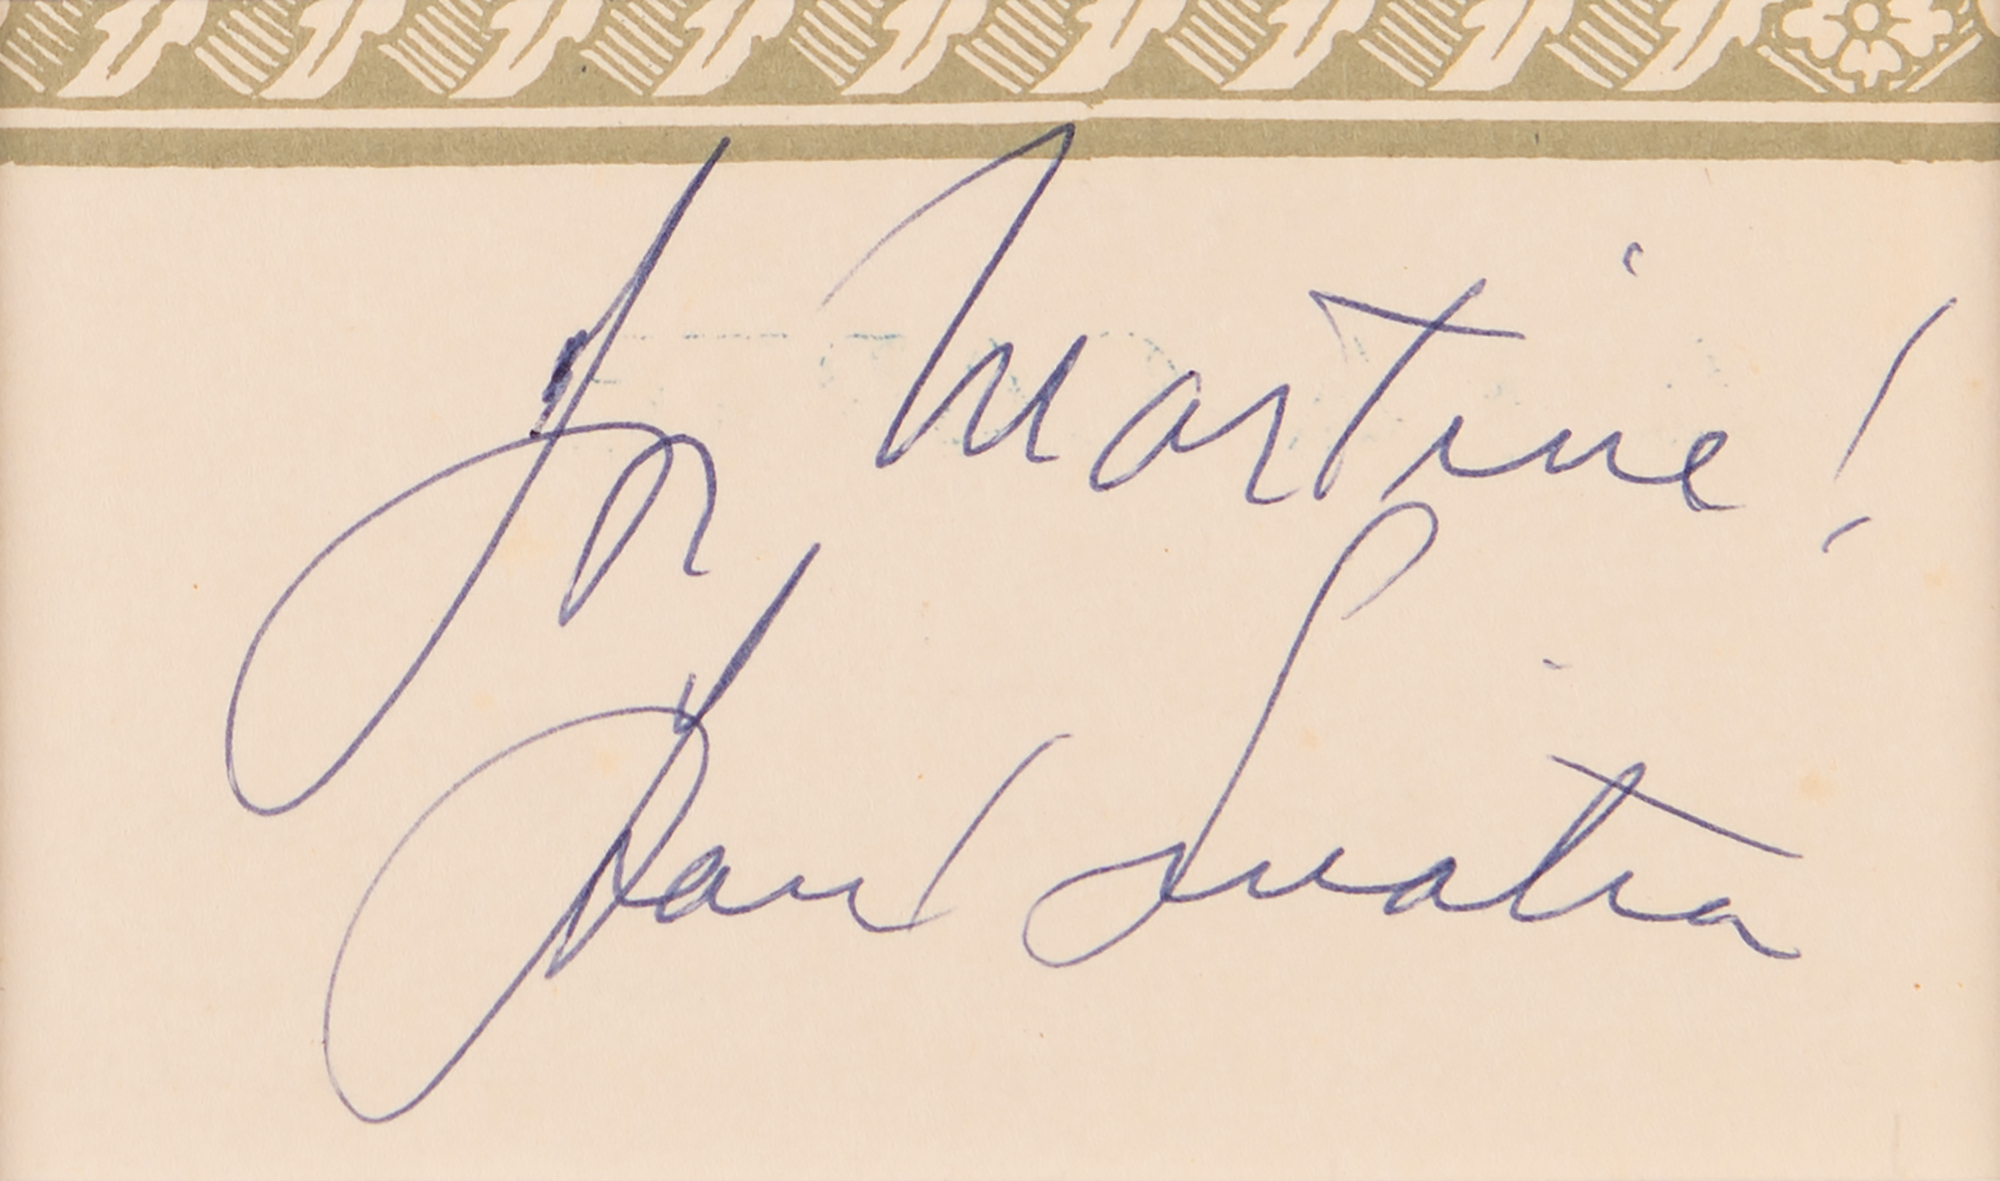 For Martine!
Frank Sinatra